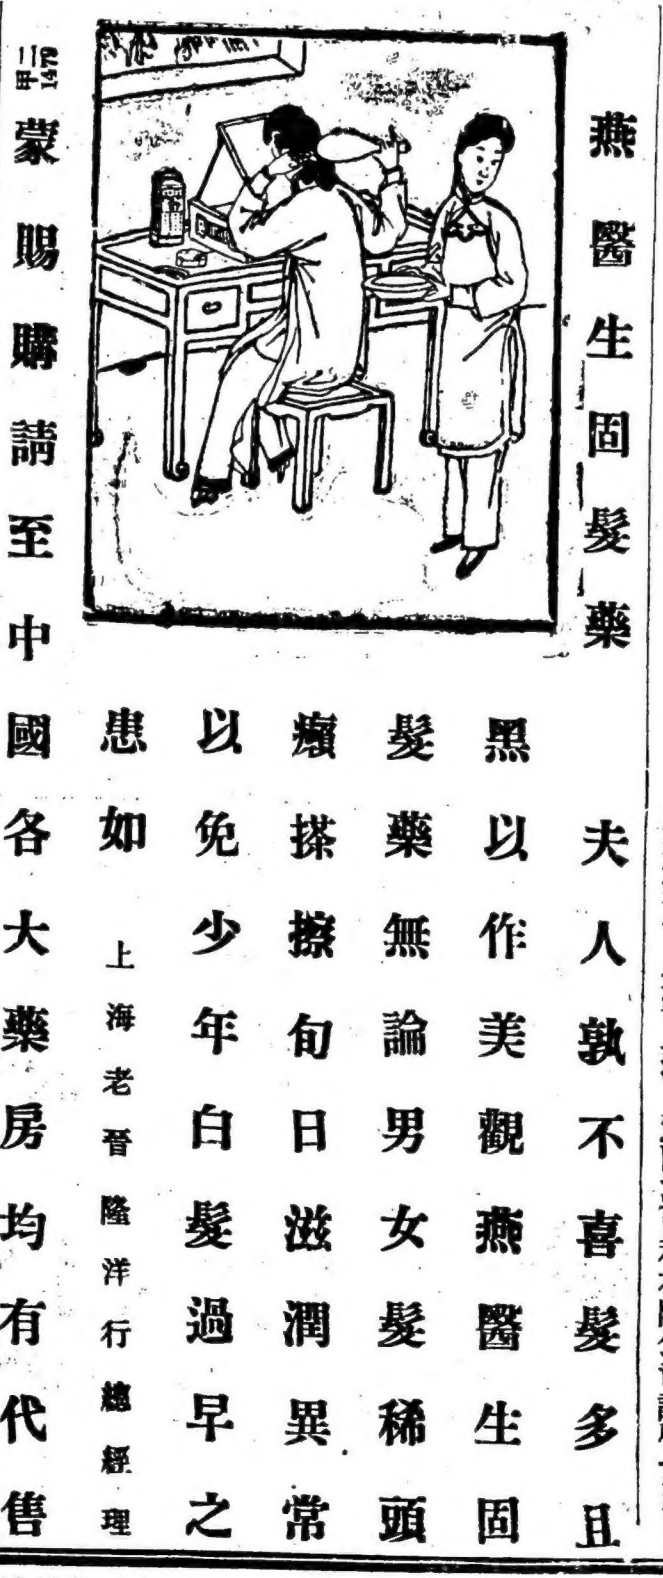 燕醫生固髮藥
夫人孰不喜髮多且
黑以作美觀燕醫生固
髮藥無論男女髮稀頭
癩搽擦旬日滋潤異常
以免少年白髮過早之
患如
上海老晉隆洋行總經理
蒙賜購請至中國各大藥房均有代售
二甲
1479